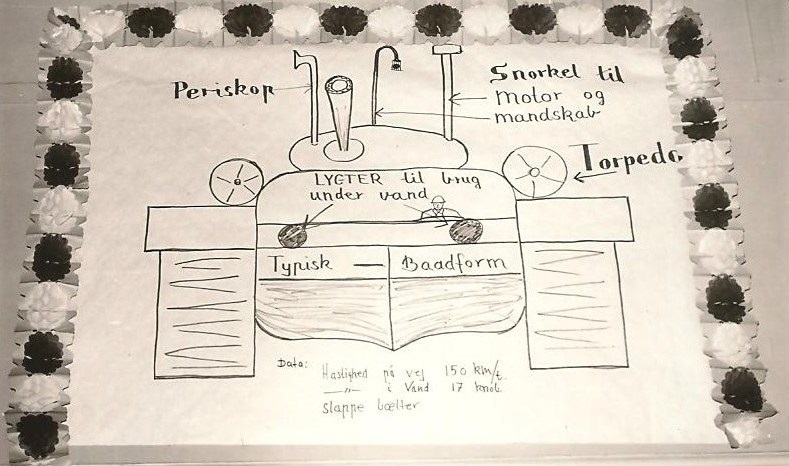 Periskop
Snorkel til
motor og
mandskab
Torpedo
LYGTER til brug
under vand
Typisk — Baadform
Data:
Hastighed på vej 150 km/t.
—"— i Vand 17 knob.
slappe bælter